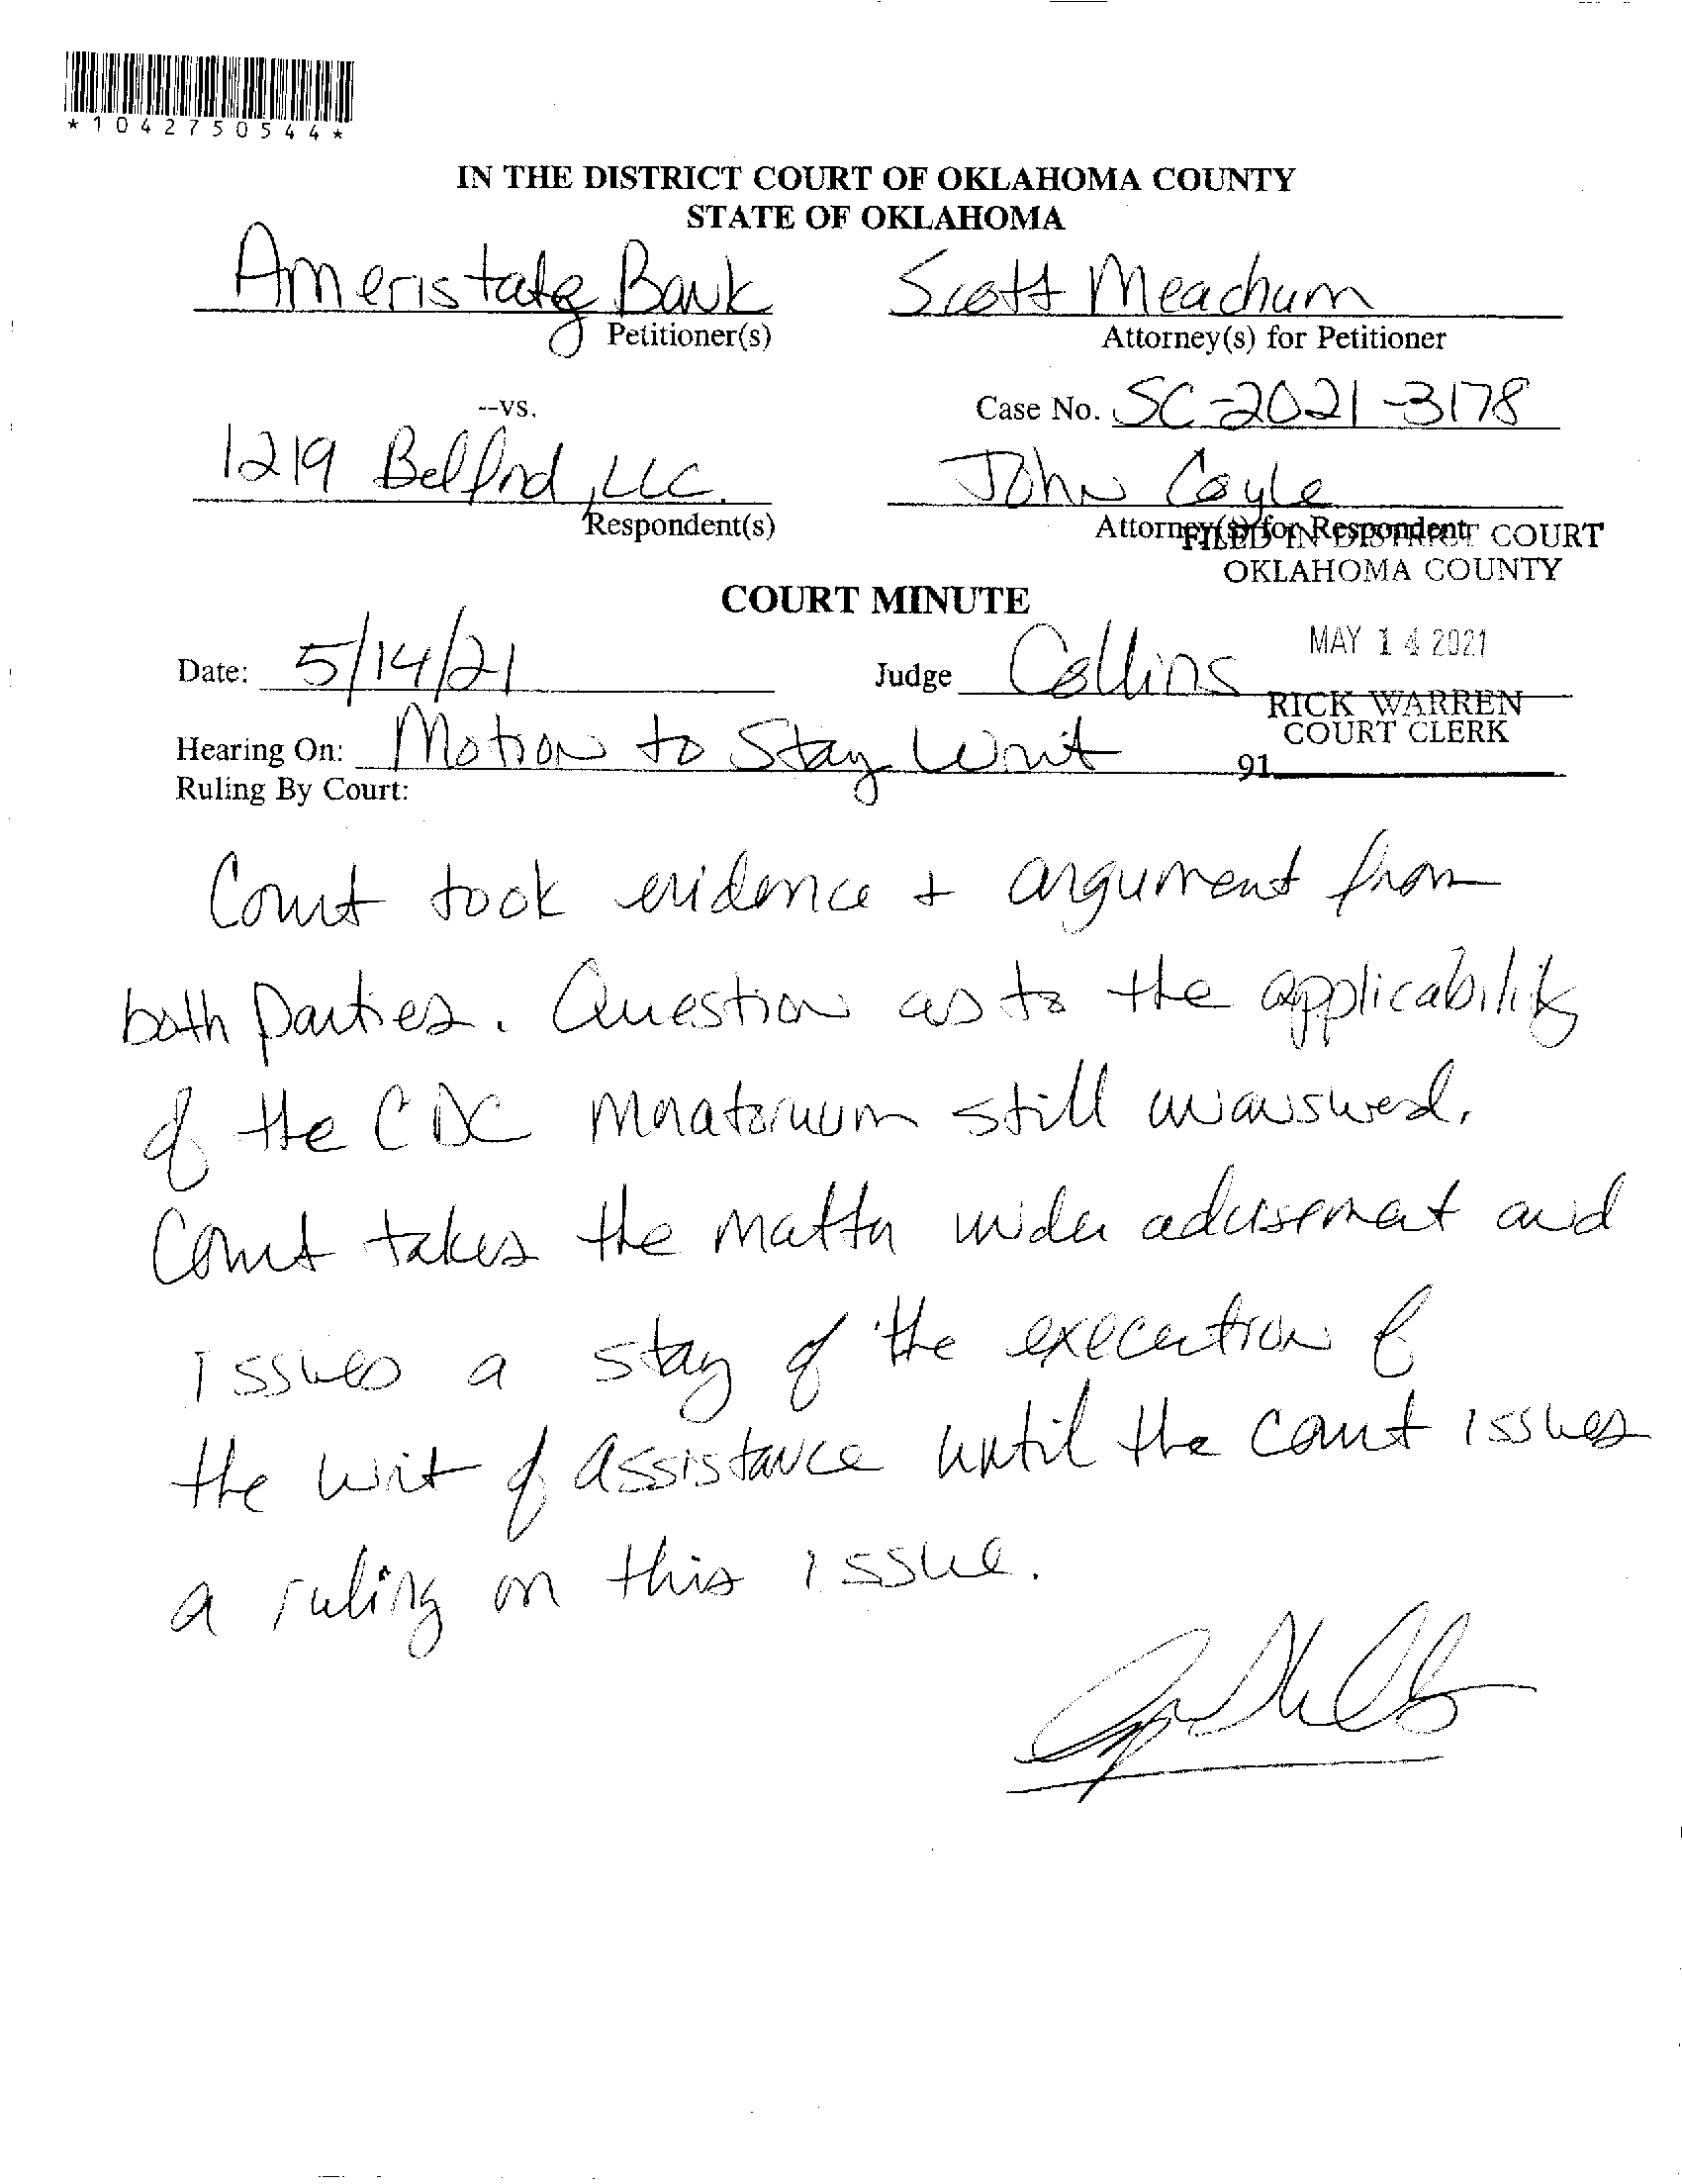 *1042750544*
IN THE DISTRICT COURT OF OKLAHOMA COUNTY
STATE OF OKLAHOMA
Ameristate Bank
Petitioner(s)
Scott Meachum
Attorney(s) for Petitioner
--vs.
Case No. SC-2021-3178
1219 Belford, LLC.
Respondent(s)
John Coyle
Attorney(s) for Respondent
FILED IN DISTRICT COURT
OKLAHOMA COUNTY
COURT MINUTE
MAY 14 2021
Date: 5/14/21
Judge Collins
RICK WARREN
COURT CLERK
Hearing On: Motion to Stay Writ
91
Ruling By Court:
Court took evidence + argument from
both parties. Question as to the applicability
of the CDC Moratorium still unanswered.
Court takes the matter under advisement and
issues a stay of the execution of
the writ of assistance until the court issues
a ruling on this issue.